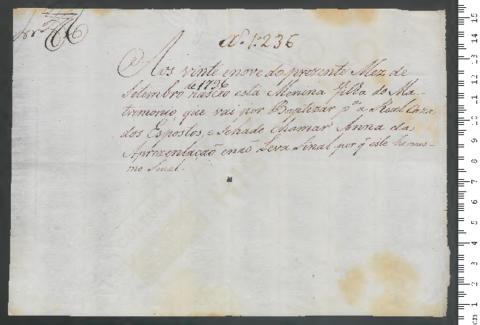 Nº 1:236
Aos vinte enove do prezente Mez de
Setembro de 1796 nasceo esta Menina Filha do Ma-
trimonio, que vai por Baptizar pª a Real Caza
dos Espostos, e Sehade chamar Anna da
Aprezentação enaõ Leva Sinal por q̃ este he o mes-
mo Sinal.